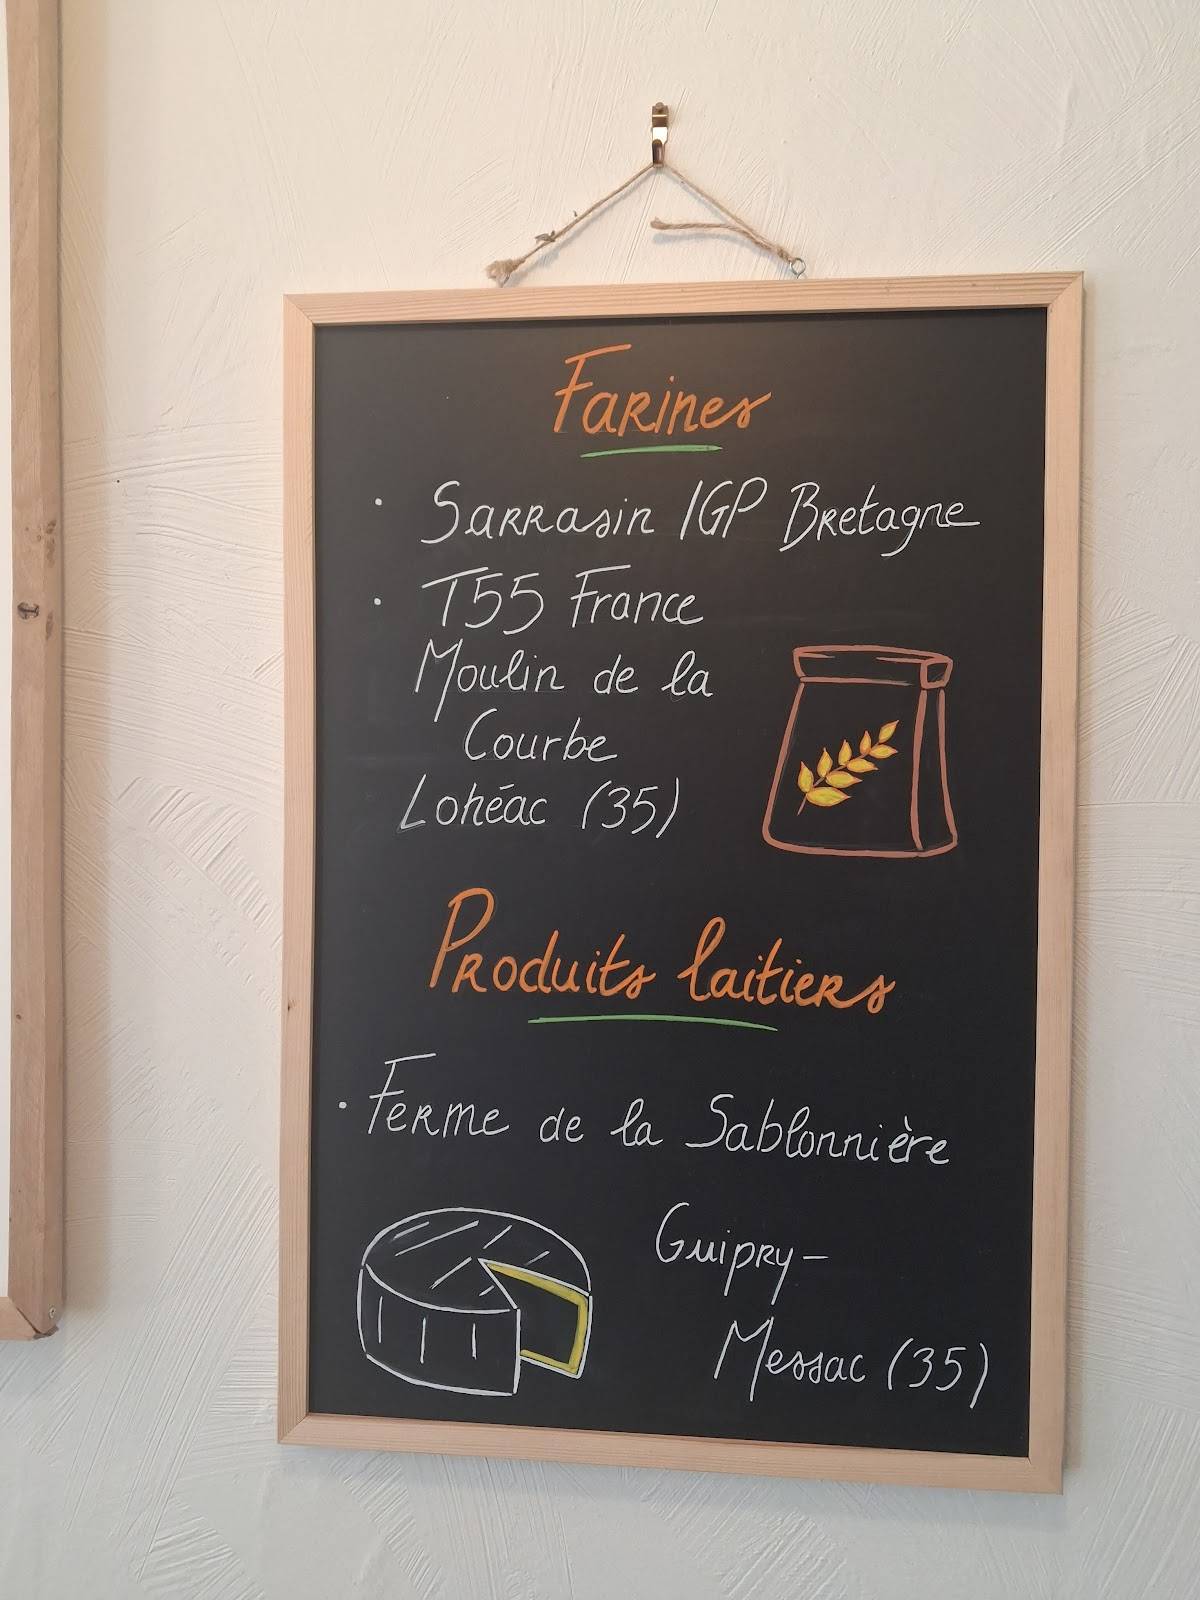 Farines
· Sarrasin IGP Bretagne
· T55 France
Moulin de la
Courbe
Lohéac (35)
Produits laitiers
· Ferme de la Sablonnière
Guipry-
Messac (35)